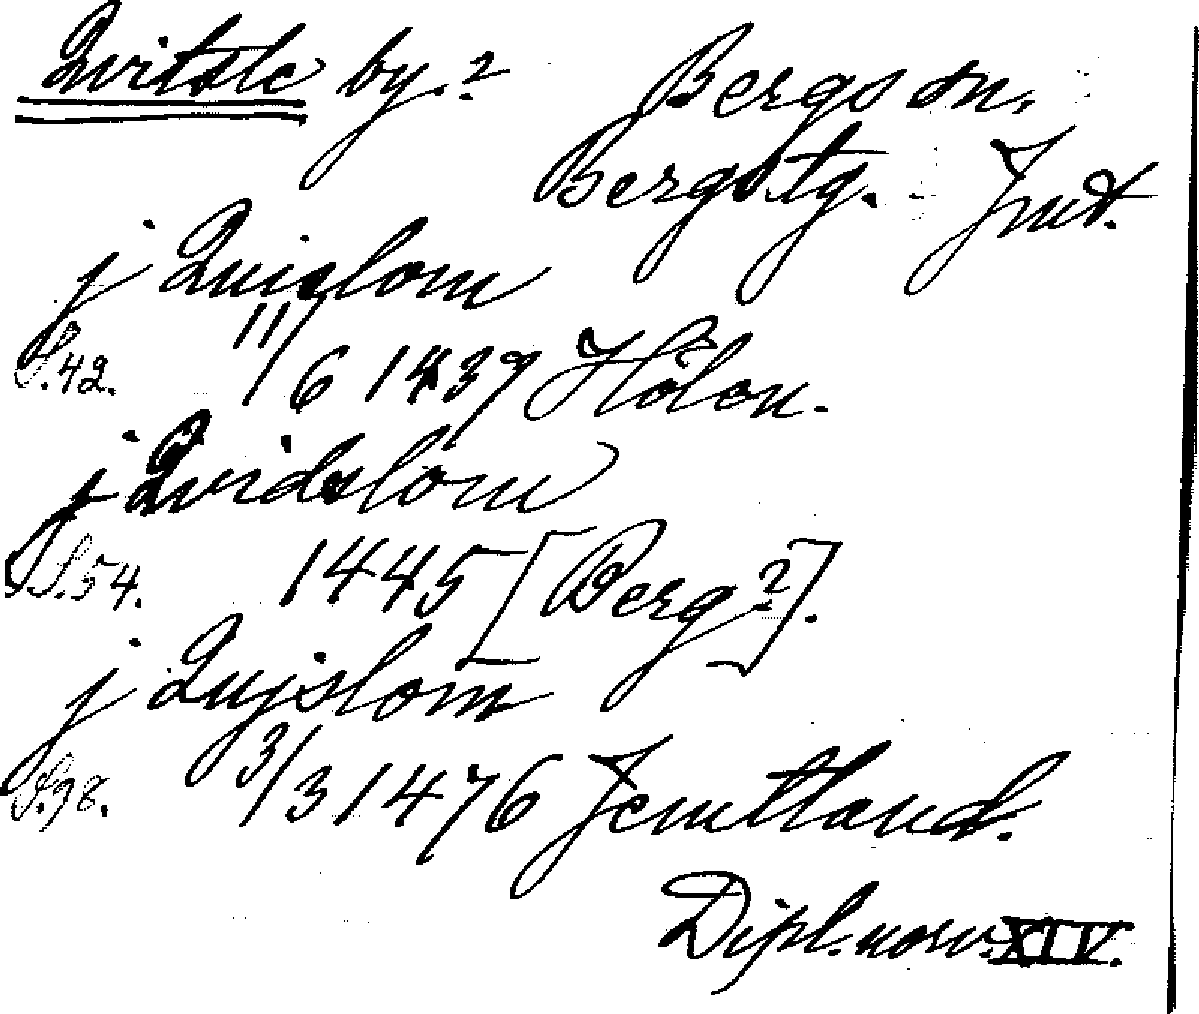 Qvitsle by.? Bergs sn.
Bergs tg. Jmt.
j Quislom
S.42. 11/6 1437 Hölon.
j Qvidslom
S.54. 1445 [Berg?].
j Qujslom
S.98. 3/3 1476 Jemtland.
Dipl. norv. XIV.